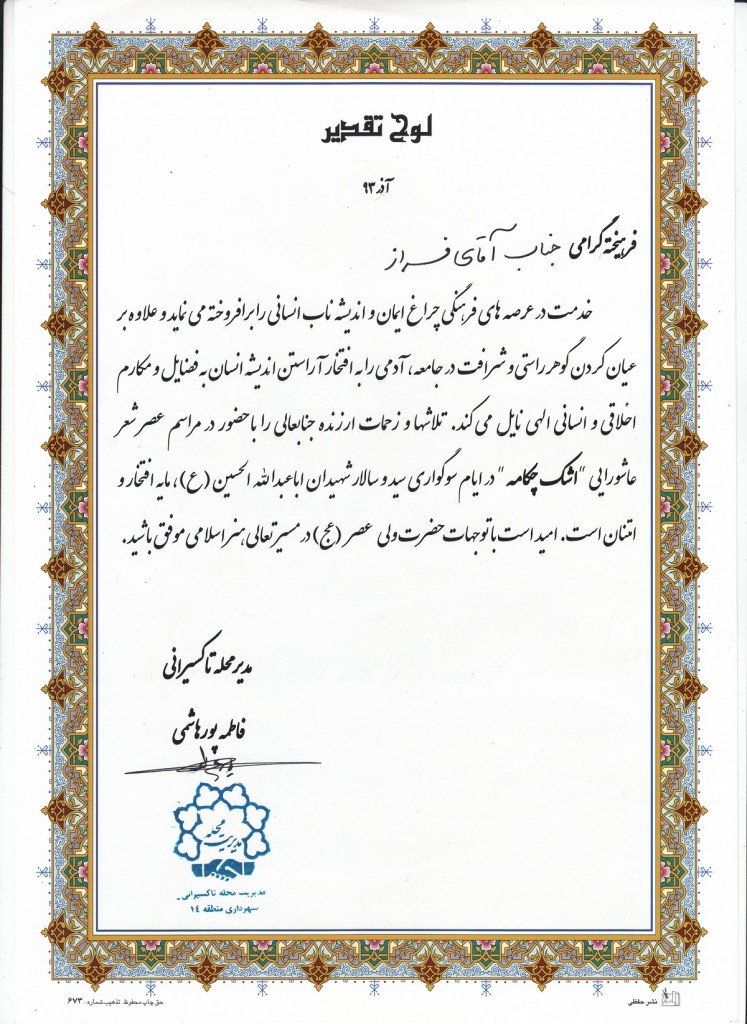 لوح تقدیر
آذر ۹۳
فرهیخته گرامی جناب آقای فراز
خدمت در عرصه های فرهنگی چراغ ایمان و اندیشه ناب انسانی را برافروخته می نماید و علاوه بر
عیان کردن گوهر راستی و شرافت در جامعه، آدمی را به افتخار آراستن اندیشه انسان به فضایل و مکارم
اخلاقی و انسانی الهی نایل می کند. تلاشها و زحمات ارزنده جنابعالی را با حضور در مراسم عصر شعر
عاشورایی "اشک چکامه" در ایام سوگواری سید و سالار شهیدان اباعبدالله الحسین (ع)، مایه افتخار و
امتنان است. امید است با توجهات حضرت ولی عصر (عج) در مسیر تعالی هنر اسلامی موفق باشید.
مدیر محله تاکسیرانی
فاطمه پورهاشمی
مدیریت محله
مدیریت محله تاکسیرانی -
شهرداری منطقه ۱۴
نشر حفظی
حق چاپ محفوظ. تذهیب شماره: ۶۷۳